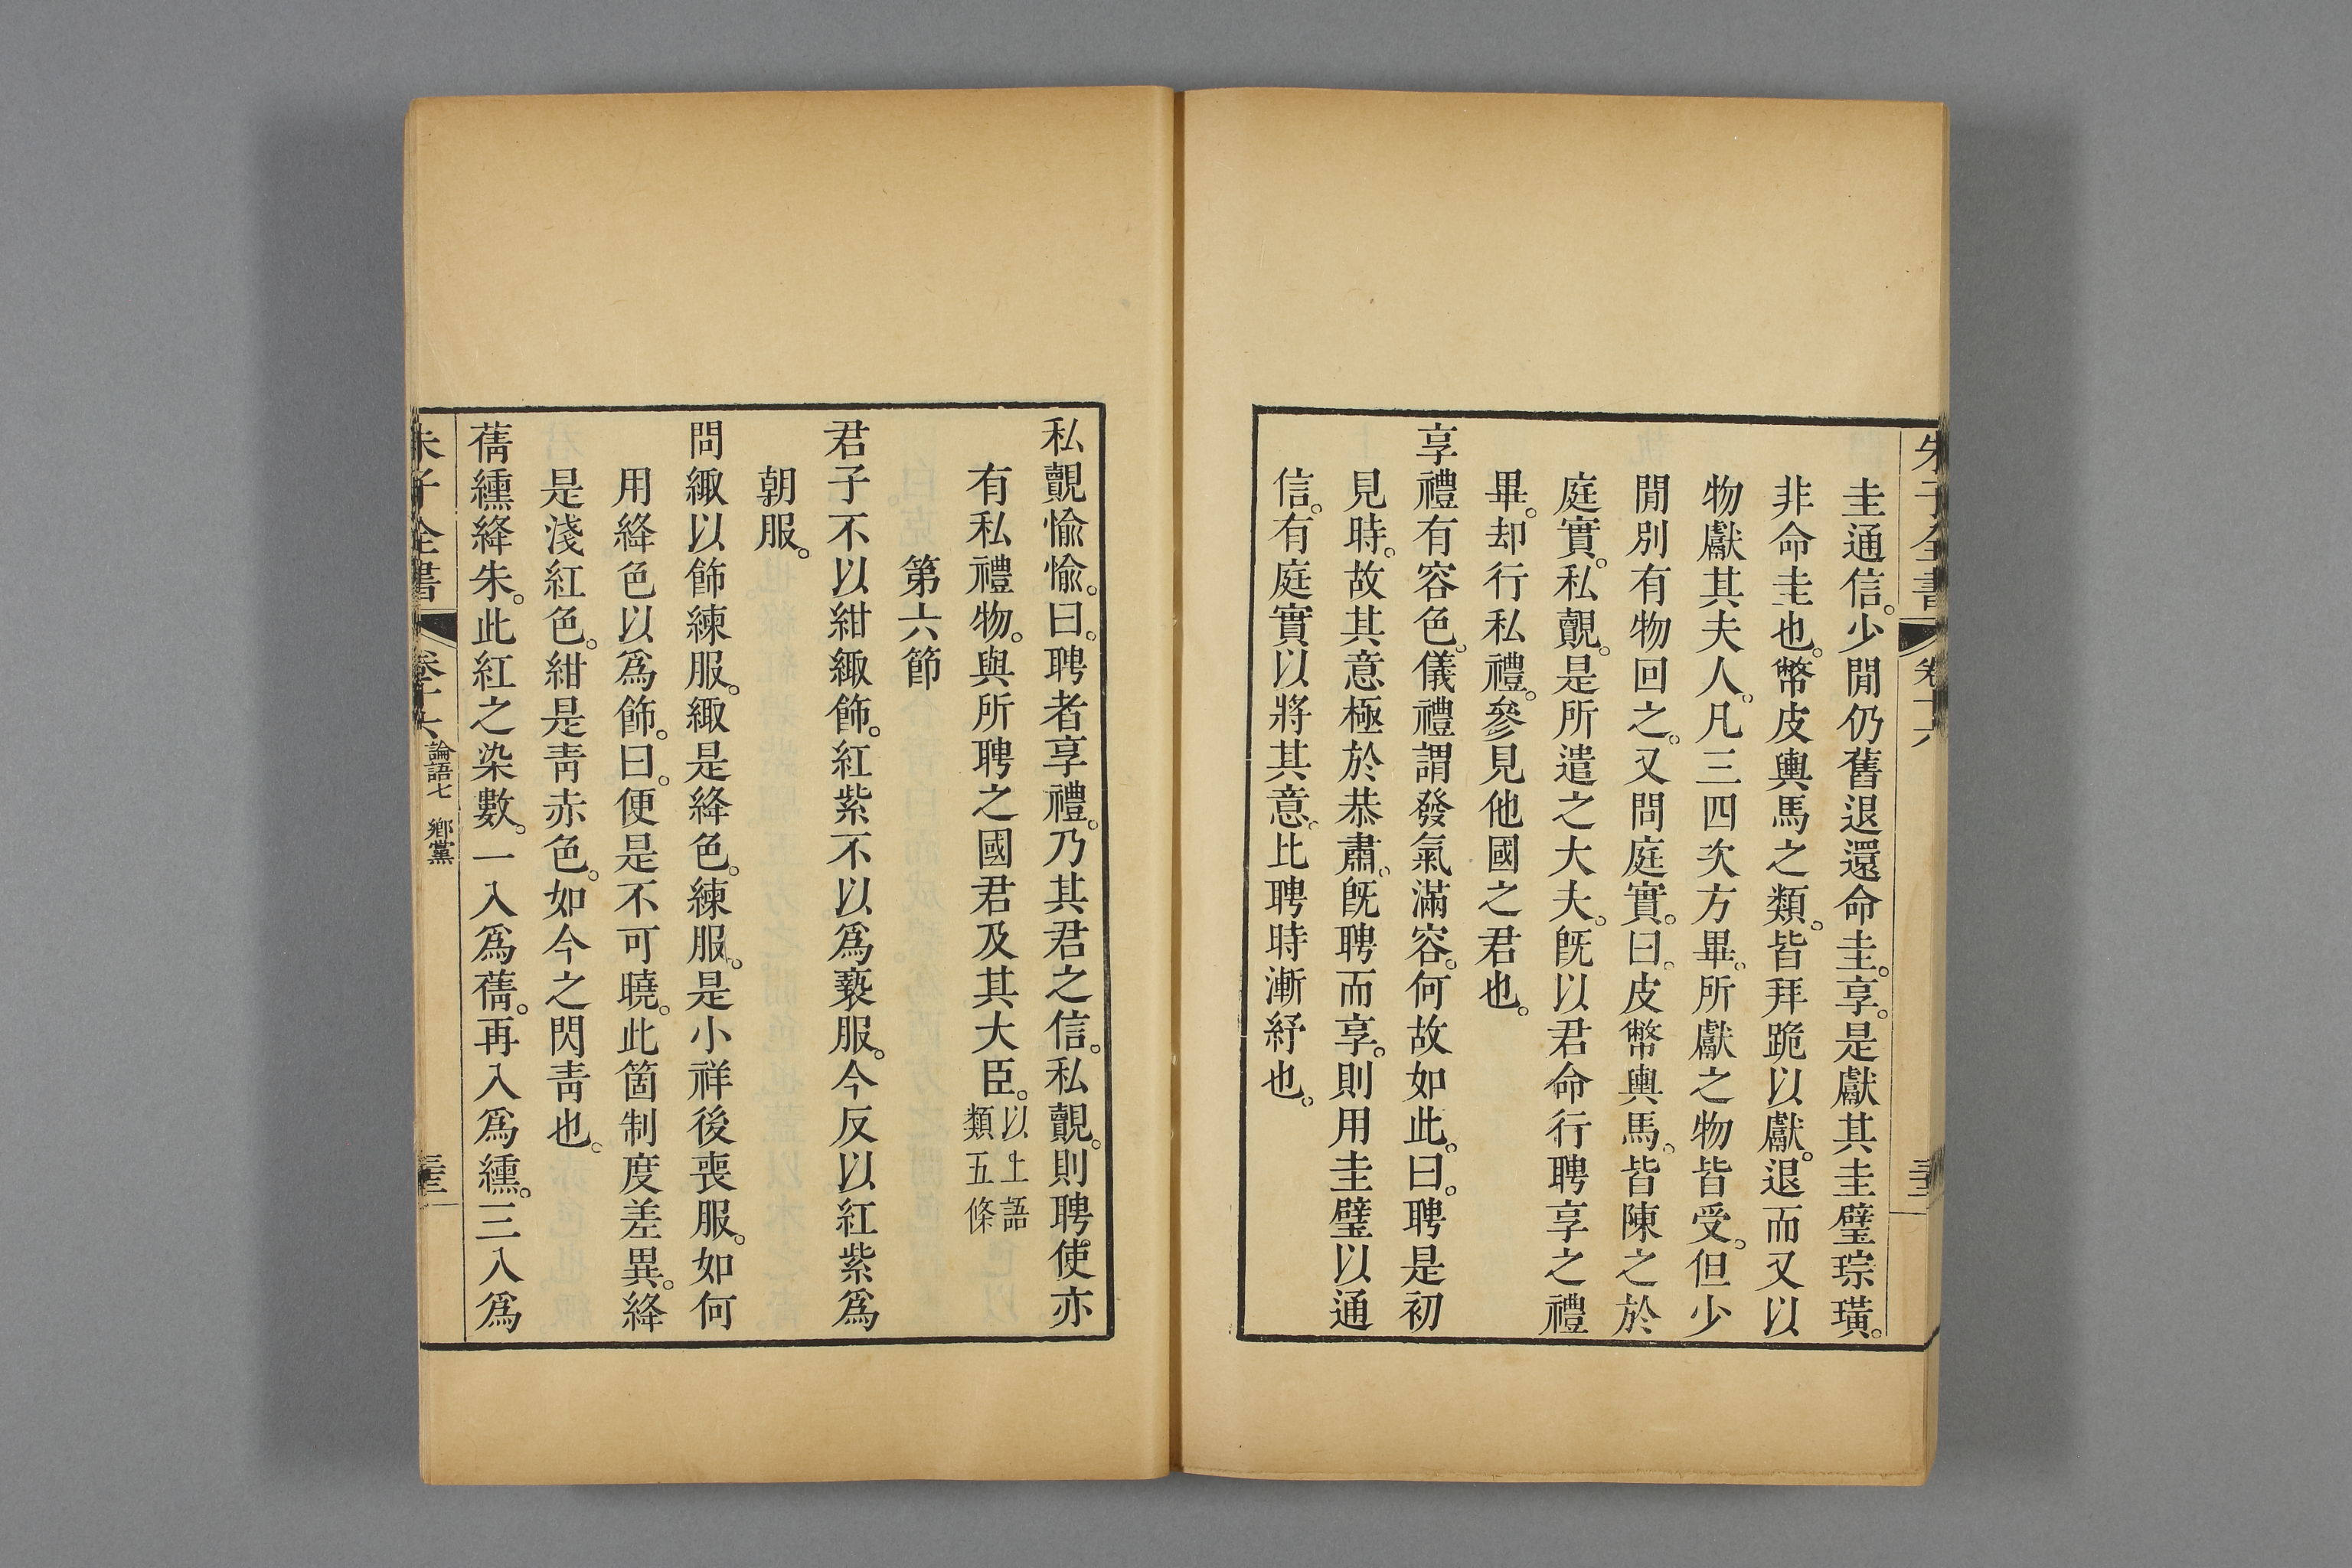 圭通信。少閒仍舊退還命圭。享。是獻其圭璧琮璜。
非命圭也。幣皮輿馬之類。皆拜跪以獻。退而又以
物獻其夫人。凡三四次方畢。所獻之物皆受。但少
閒別有物回之。又問庭實。曰。皮幣輿馬。皆陳之於
庭實。私覿。是所遣之大夫。旣以君命行聘享之禮
畢。却行私禮。參見他國之君也。
享禮有容色。儀禮謂發氣滿容。何故如此。曰。聘是初
見時。故其意極於恭肅。旣聘而享。則用圭璧以通
信。有庭實以將其意。比聘時漸紓也。
私覿愉愉。曰。聘者享禮。乃其君之信。私覿。則聘使亦
有私禮物。與所聘之國君及其大臣。以上語類五條
第六節
君子不以紺緅飾。紅紫不以爲褻服。今反以紅紫爲
朝服。
問緅以飾練服。緅是絳色。練服。是小祥後喪服。如何
用絳色以爲飾。曰。便是不可曉。此箇制度差異。絳
是淺紅色。紺是靑赤色。如今之閃靑也。
蒨纁絳朱。此紅之染數。一入爲蒨。再入爲纁。三入爲
朱子全書 卷十六 論語七 鄉黨